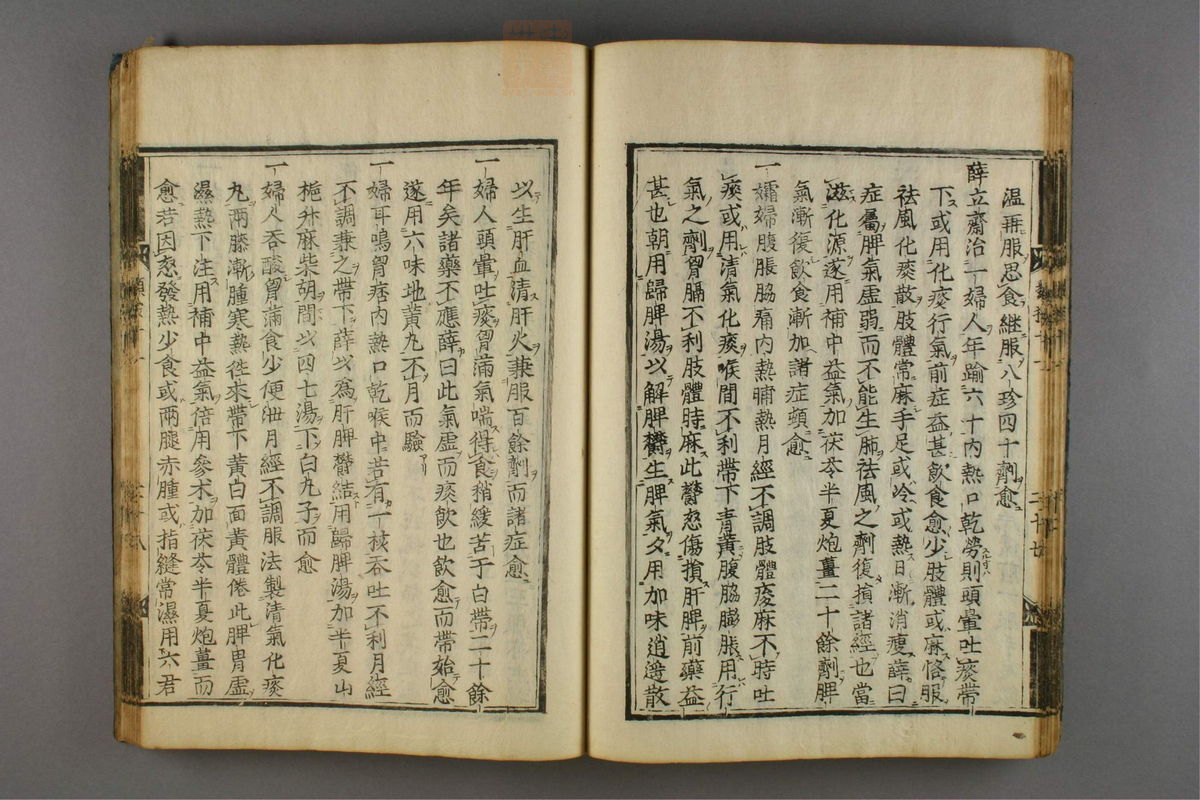 温再服思食继服八珍四十劑愈
薛立齋治一婦人年踰六十内熱口乾勞則頭暈吐痰帶
下或用化痰行氣前症益甚飲食愈少肢體或麻恪服
祛風化痰散肢體常麻手足或冷或熱日漸消瘦薛曰
症屬脾氣虚弱而不能生肺祛風之劑復損諸經也當
滋化源遂用補中益氣加茯苓半夏炮薑二十餘劑脾
氣漸復飲食漸加諸症頓愈
一孀婦腹脹脇痛内熱晡熱月經不調肢體痠麻不時吐
痰或用清氣化痰喉間不利帶下青黄腹脇膨脹用行
氣之劑胷膈不利肢體時麻此鬱怒傷損肝脾前藥益
甚也朝用歸脾湯以解脾鬱生脾氣夕用加味逍遥散
以生肝血清肝火兼服百餘劑而諸症愈
一婦人頭暈吐痰胷滿氣喘得食稍緩苦于白帶二十餘
年矣諸藥不應薛曰此氣虚而痰飲也飲愈而帶始愈
遂用六味地黄丸不月而驗
一婦耳鳴胷痞内熱口乾喉中若有一核吞吐不利月經
不調兼之帶下薛以為肝脾鬱結用歸脾湯加半夏山
栀升麻柴胡間以四七湯下白丸子而愈
一婦人吞酸胷滿食少便泄月經不調服法製清氣化痰
丸兩膝漸腫寒熱往來帶下黄白面黄體倦此脾胃虚
濕熱下注用補中益氣倍用參术加茯苓半夏炮薑而
愈若因怒發熱少食或兩腿赤腫或指縫常濕用六君